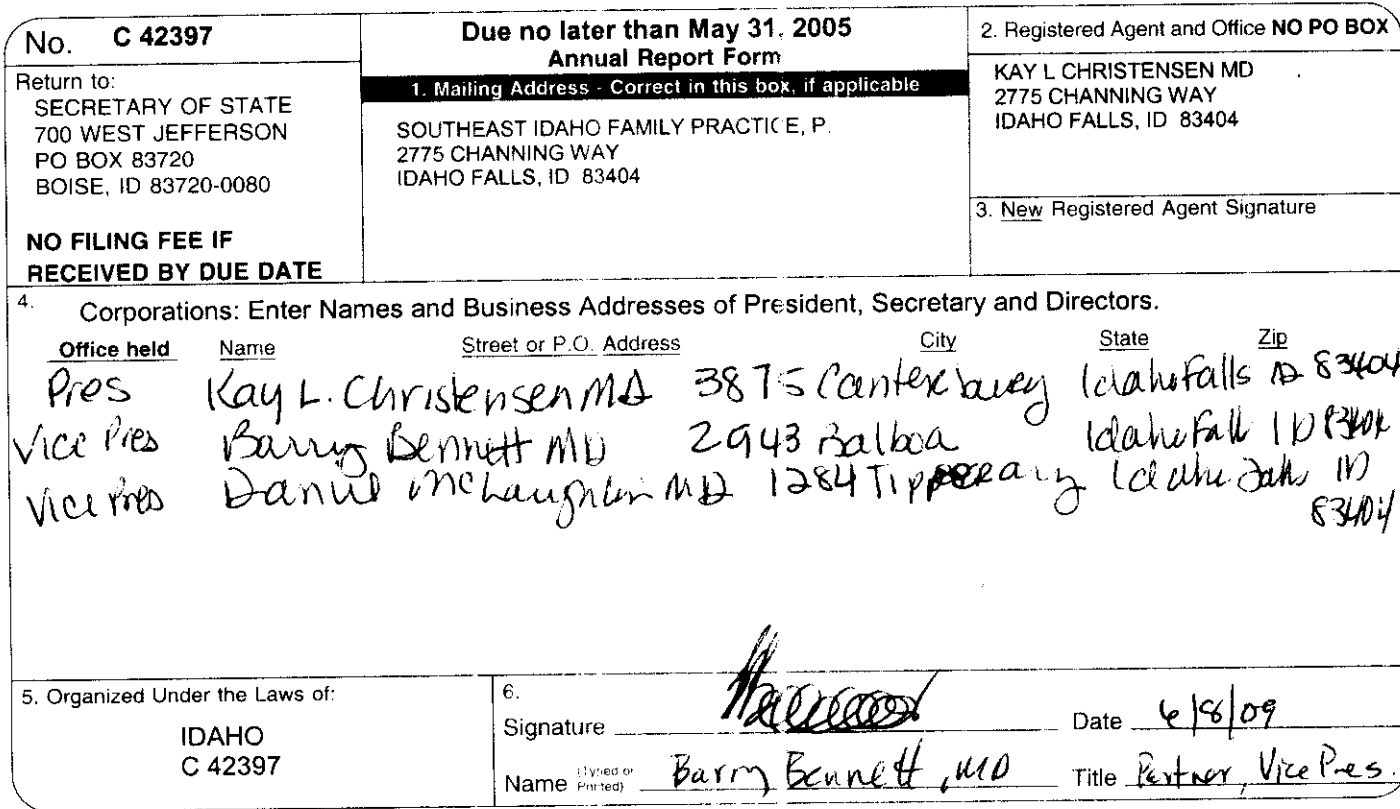 No. C 42397
Return to:
SECRETARY OF STATE
700 WEST JEFFERSON
PO BOX 83720
BOISE, ID 83720-0080
NO FILING FEE IF
RECEIVED BY DUE DATE
Due no later than May 31, 2005
Annual Report Form
1. Mailing Address - Correct in this box, if applicable
SOUTHEAST IDAHO FAMILY PRACTICE, P.
2775 CHANNING WAY
IDAHO FALLS, ID 83404
2. Registered Agent and Office NO PO BOX
KAY L CHRISTENSEN MD
2775 CHANNING WAY
IDAHO FALLS, ID 83404
3. New Registered Agent Signature
4. Corporations: Enter Names and Business Addresses of President, Secretary and Directors.
Office held Name Street or P.O. Address City State Zip
Pres Kay L. Christensen MD 3875 Canterbury Idaho Falls ID 83404
Vice Pres Barry Bennett MD 2943 Balboa Idaho Fall ID 83404
Vice Pres Daniel McLaughlin MD 1284 Tipperary Idaho Falls ID
83404
5. Organized Under the Laws of:
IDAHO
C 42397
6.
Signature Date 6/8/09
Name (Typed or Printed) Barry Bennett, MD Title Partner, Vice Pres.